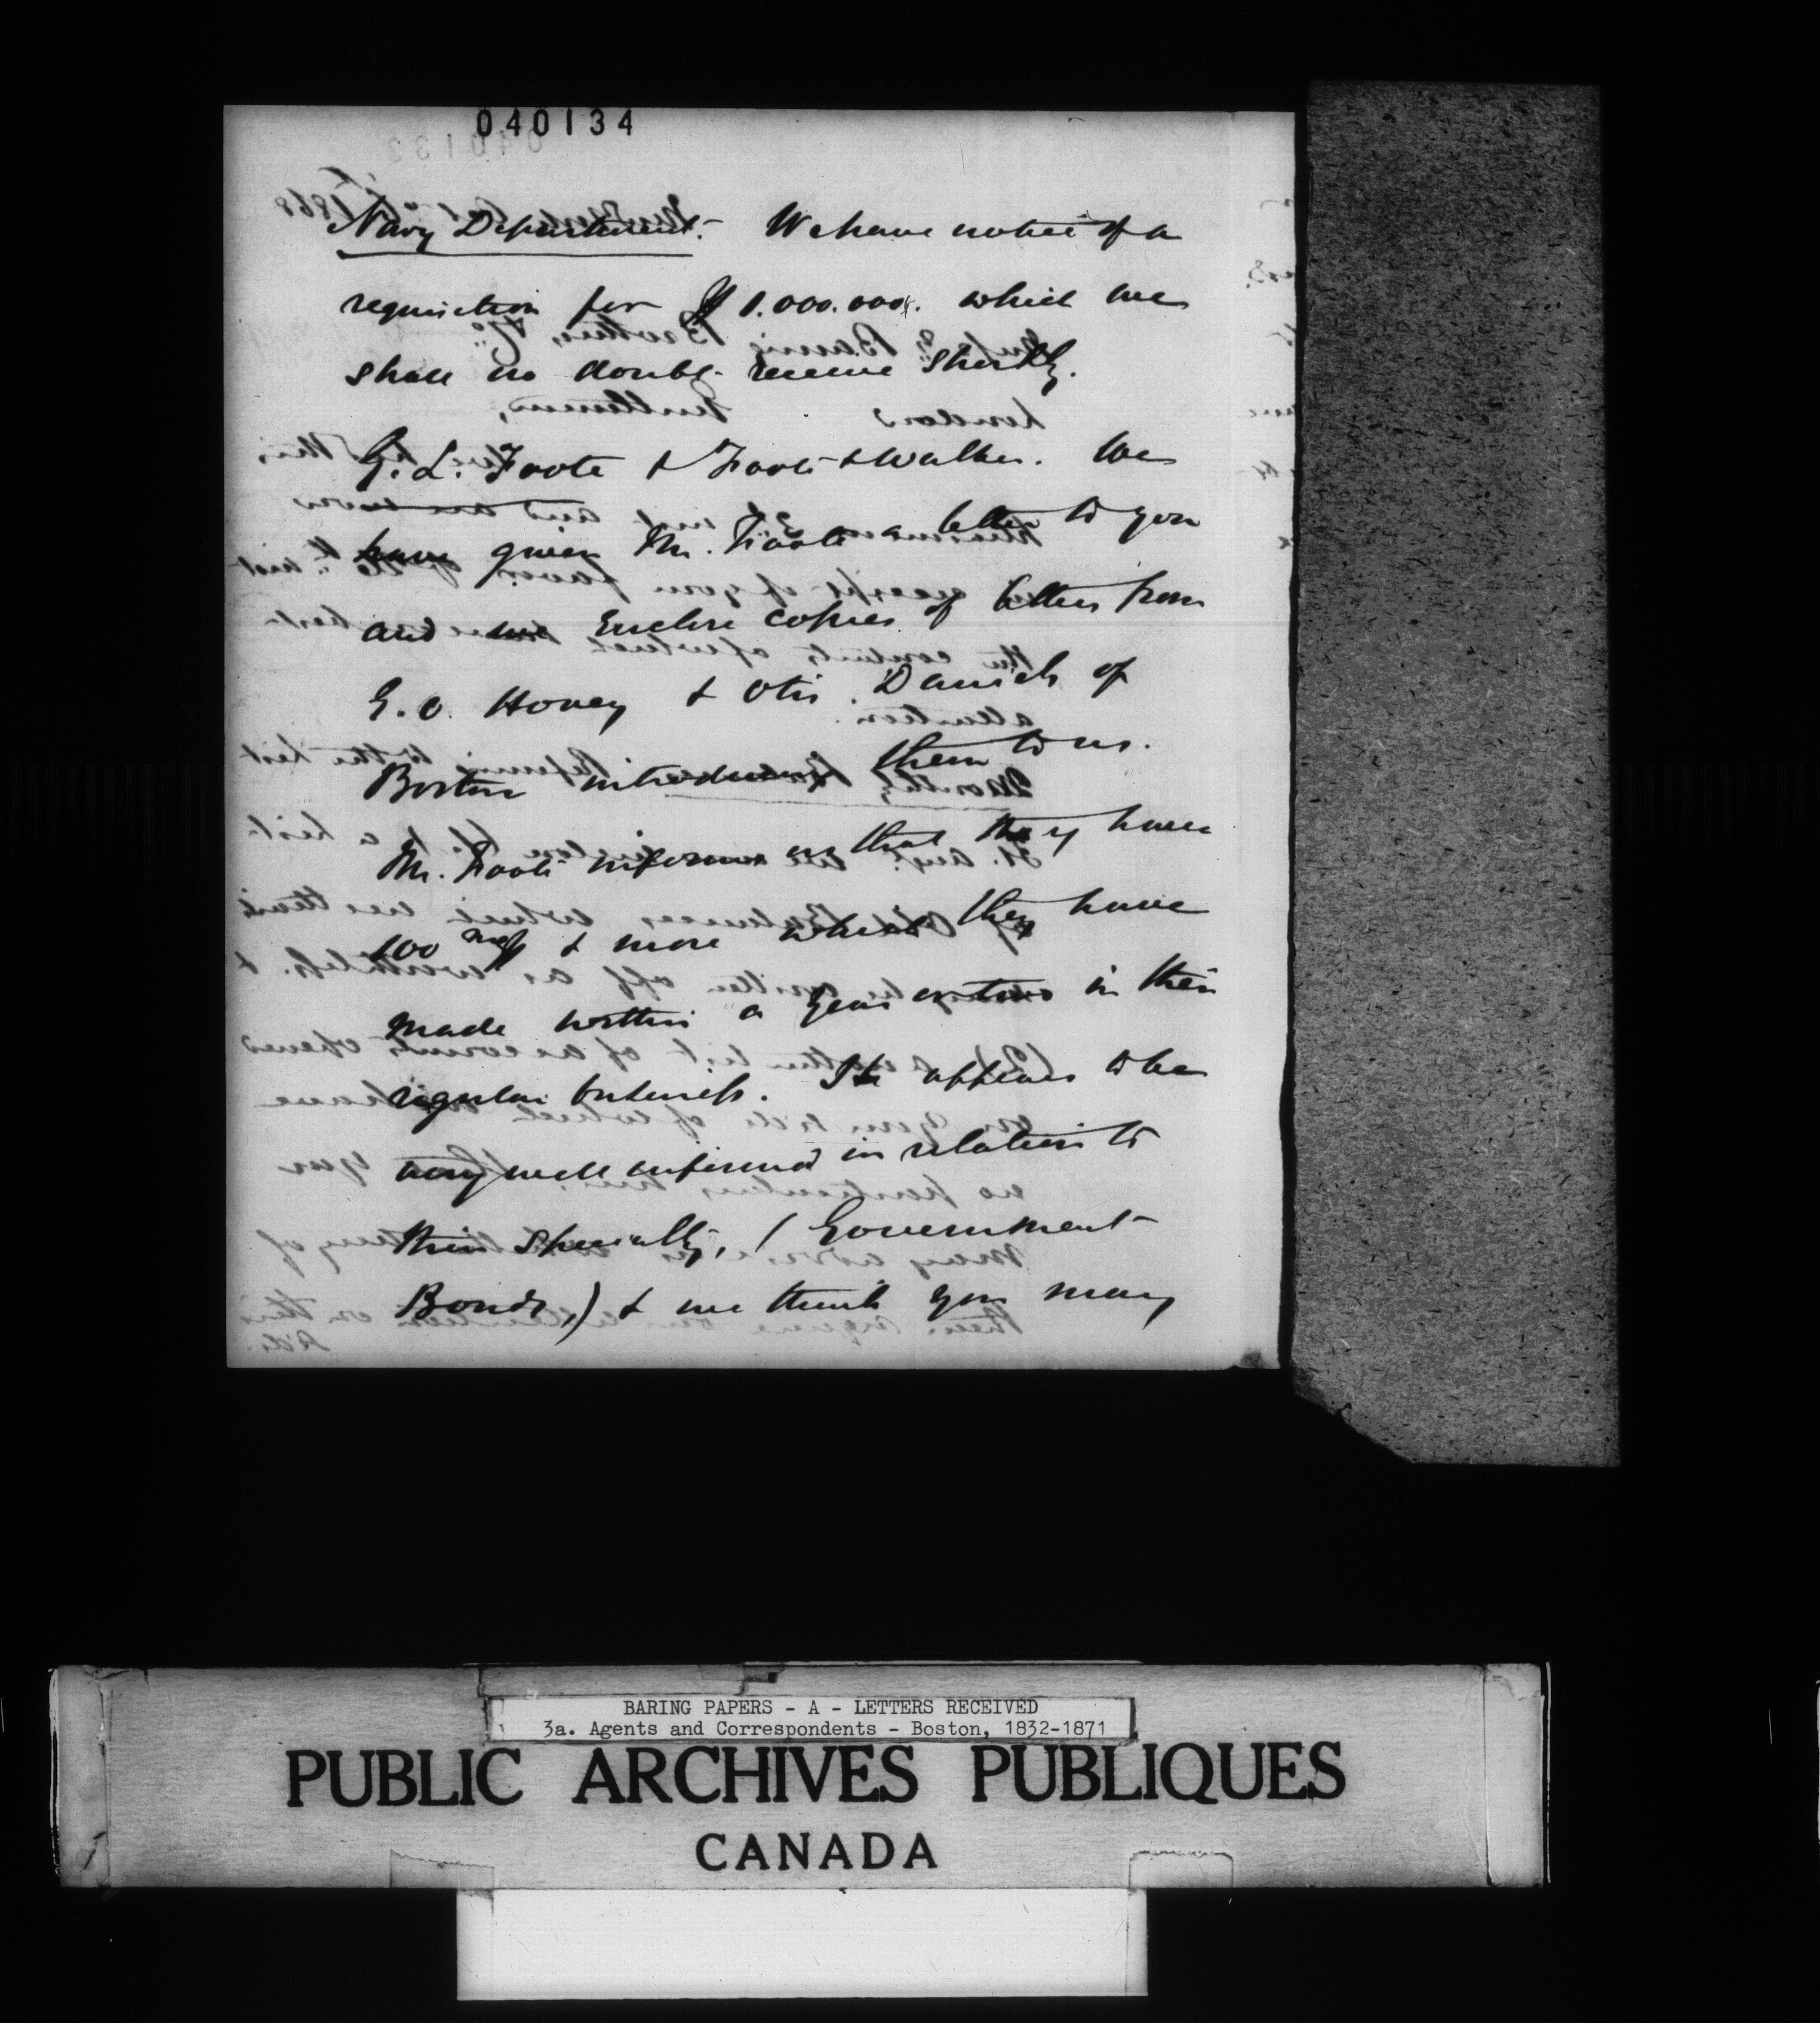 040134
Navy Department. We have notice of a
requisition for $1.000.000. which we
shall no doubt receive shortly.
G. L. Foote & Foote & Walker. We
have given Mr. Foote a letter to you
and enclose copies of letters from
E. O. Hovey & Otis Daniels of
Boston introducing them to us.
Mr. Foote informs us that they have
100 & more which they have
made within a year or two in their
regular business. He appears to be
very well informed in relation to
their specialty, (Government
Bonds,) & we think you may
BARING PAPERS - A - LETTERS RECEIVED
3a. Agents and Correspondents - Boston, 1832-1871
PUBLIC ARCHIVES PUBLIQUES
CANADA